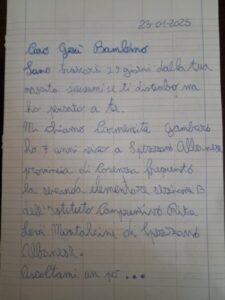 23-01-2025
Caro Gesù Bambino
Sono trascorsi 29 giorni dalla tua
nascita scusami se ti disturbo ma
ho pensato a te.
Mi chiamo
ho 7 anni vivo a Spezzano Albanese
provincia di Cosenza frequento
la seconda elementare sezione B
dell'Istituto Comprensivo Rita
Levi Montalcini di Spezzano
Albanese.
Ascoltami un po'...